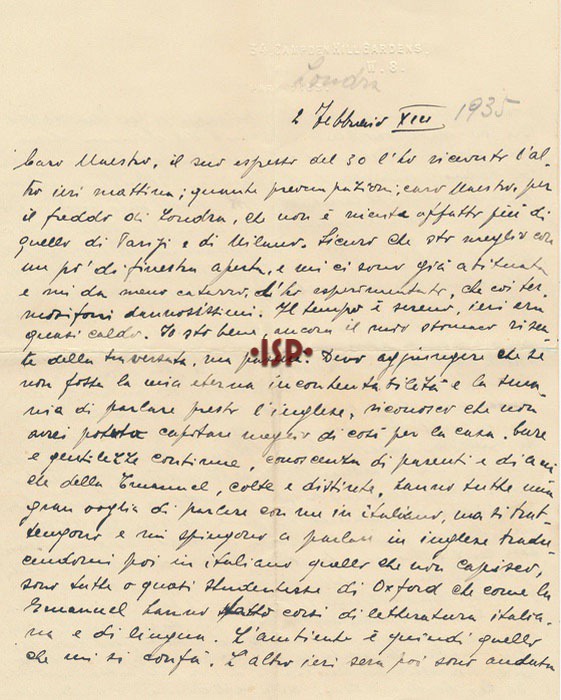 39 CAMPDEN HILL GARDENS,
W. 8.
Londra
2 Febbraio XIII 1935
Caro Maestro, il suo espresso del 30 l'ho ricevuto l'al-
tro ieri mattina; quante preoccupazioni, caro Maestro, per
il freddo di Londra, che non è niente affatto più di
quello di Parigi e di Milano. Sicuro che sto meglio con
un po' di finestra aperta, e mi ci sono già abituata
e mi da meno catarro, l'ho esperimentato, che coi ter-
mosifoni dannosissimi. Il tempo è sereno, ieri era
quasi caldo. Io sto bene, ancora il mio stomaco risen-
te della traversata, ma passa. Devo aggiungere che se
non fosse la mia eterna incontentabilità e la sma-
nia di parlare presto l'inglese, riconosco che non
avrei potuto capitare meglio di così per la casa. Cure
e gentilezze continue, conoscenza di parenti e di ami
che della Emanuel, colte e distinte, hanno tutte una
gran voglia di parlare con me in italiano, ma si trat-
tengono e mi spingono a parlare in inglese tradu-
cendomi poi in italiano quello che non capisco,
sono tutte o quasi studentesse di Oxford che come la
Emanuel hanno fatto corsi di letteratura italia-
na e di lingua. L'ambiente è quindi quello
che mi si confà. L'altro ieri sera poi sono andata
•ISP•